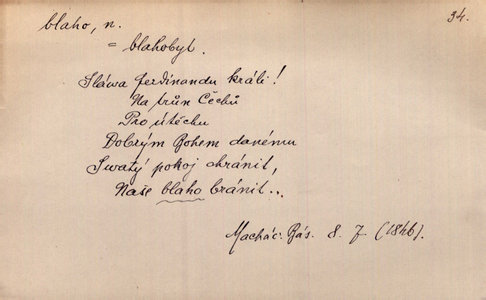 blaho, n.
34.
= blahobyt.
Sláwa Ferdinandu králi!
Na trůn Čechů
Pro útěchu
Dobrým Bohem danému
Swatý pokoj chránit,
Naše blaho bránit..
Machác. Bás. 8. 7. (1846).